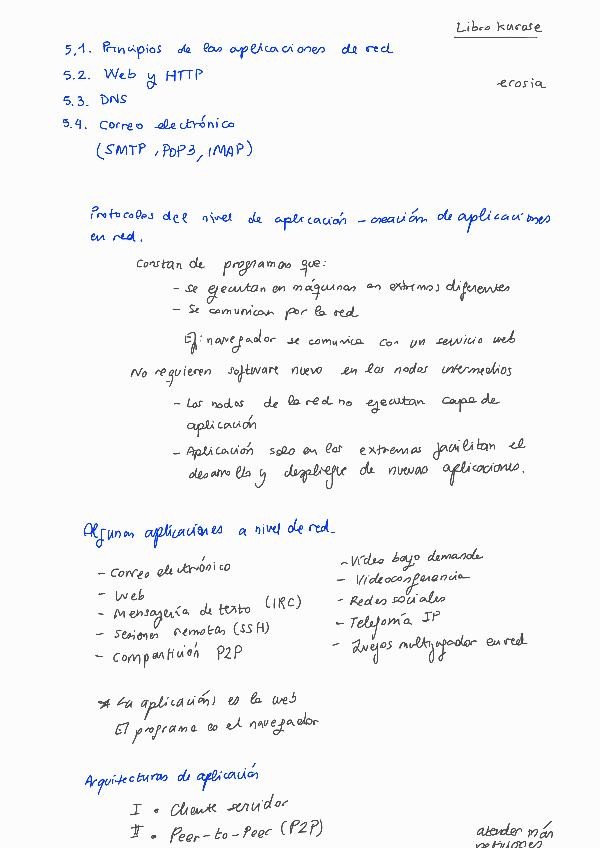 Libro Kurose
5.1. Principios de las aplicaciones de red
5.2. Web y HTTP
ecosia
5.3. DNS
5.4. Correo electrónico
(SMTP, POP3, IMAP)
Protocolos del nivel de aplicación - creación de aplicaciones
en red.
Constan de programas que:
- Se ejecutan en máquinas en extremos diferentes
- Se comunican por la red
Ej: navegador se comunica con un servicio web
No requieren software nuevo en los nodos intermedios
- Los nodos de la red no ejecutan capa de
aplicación
- Aplicación solo en los extremos facilitan el
desarrollo y despliegue de nuevas aplicaciones.
Algunas aplicaciones a nivel de red.
- Correo electrónico
- Web
- Mensajería de texto (IRC)
- Sesiones remotas (SSH)
- Compartición P2P
- Video bajo demande
- Videoconferencia
- Redes sociales
- Telefonía IP
- Juegos multijugador en red
* La aplicación es la web
El programa es el navegador
Arquitecturas de aplicación
I • Cliente servidor
II • Peer-to-Peer (P2P)
atender más